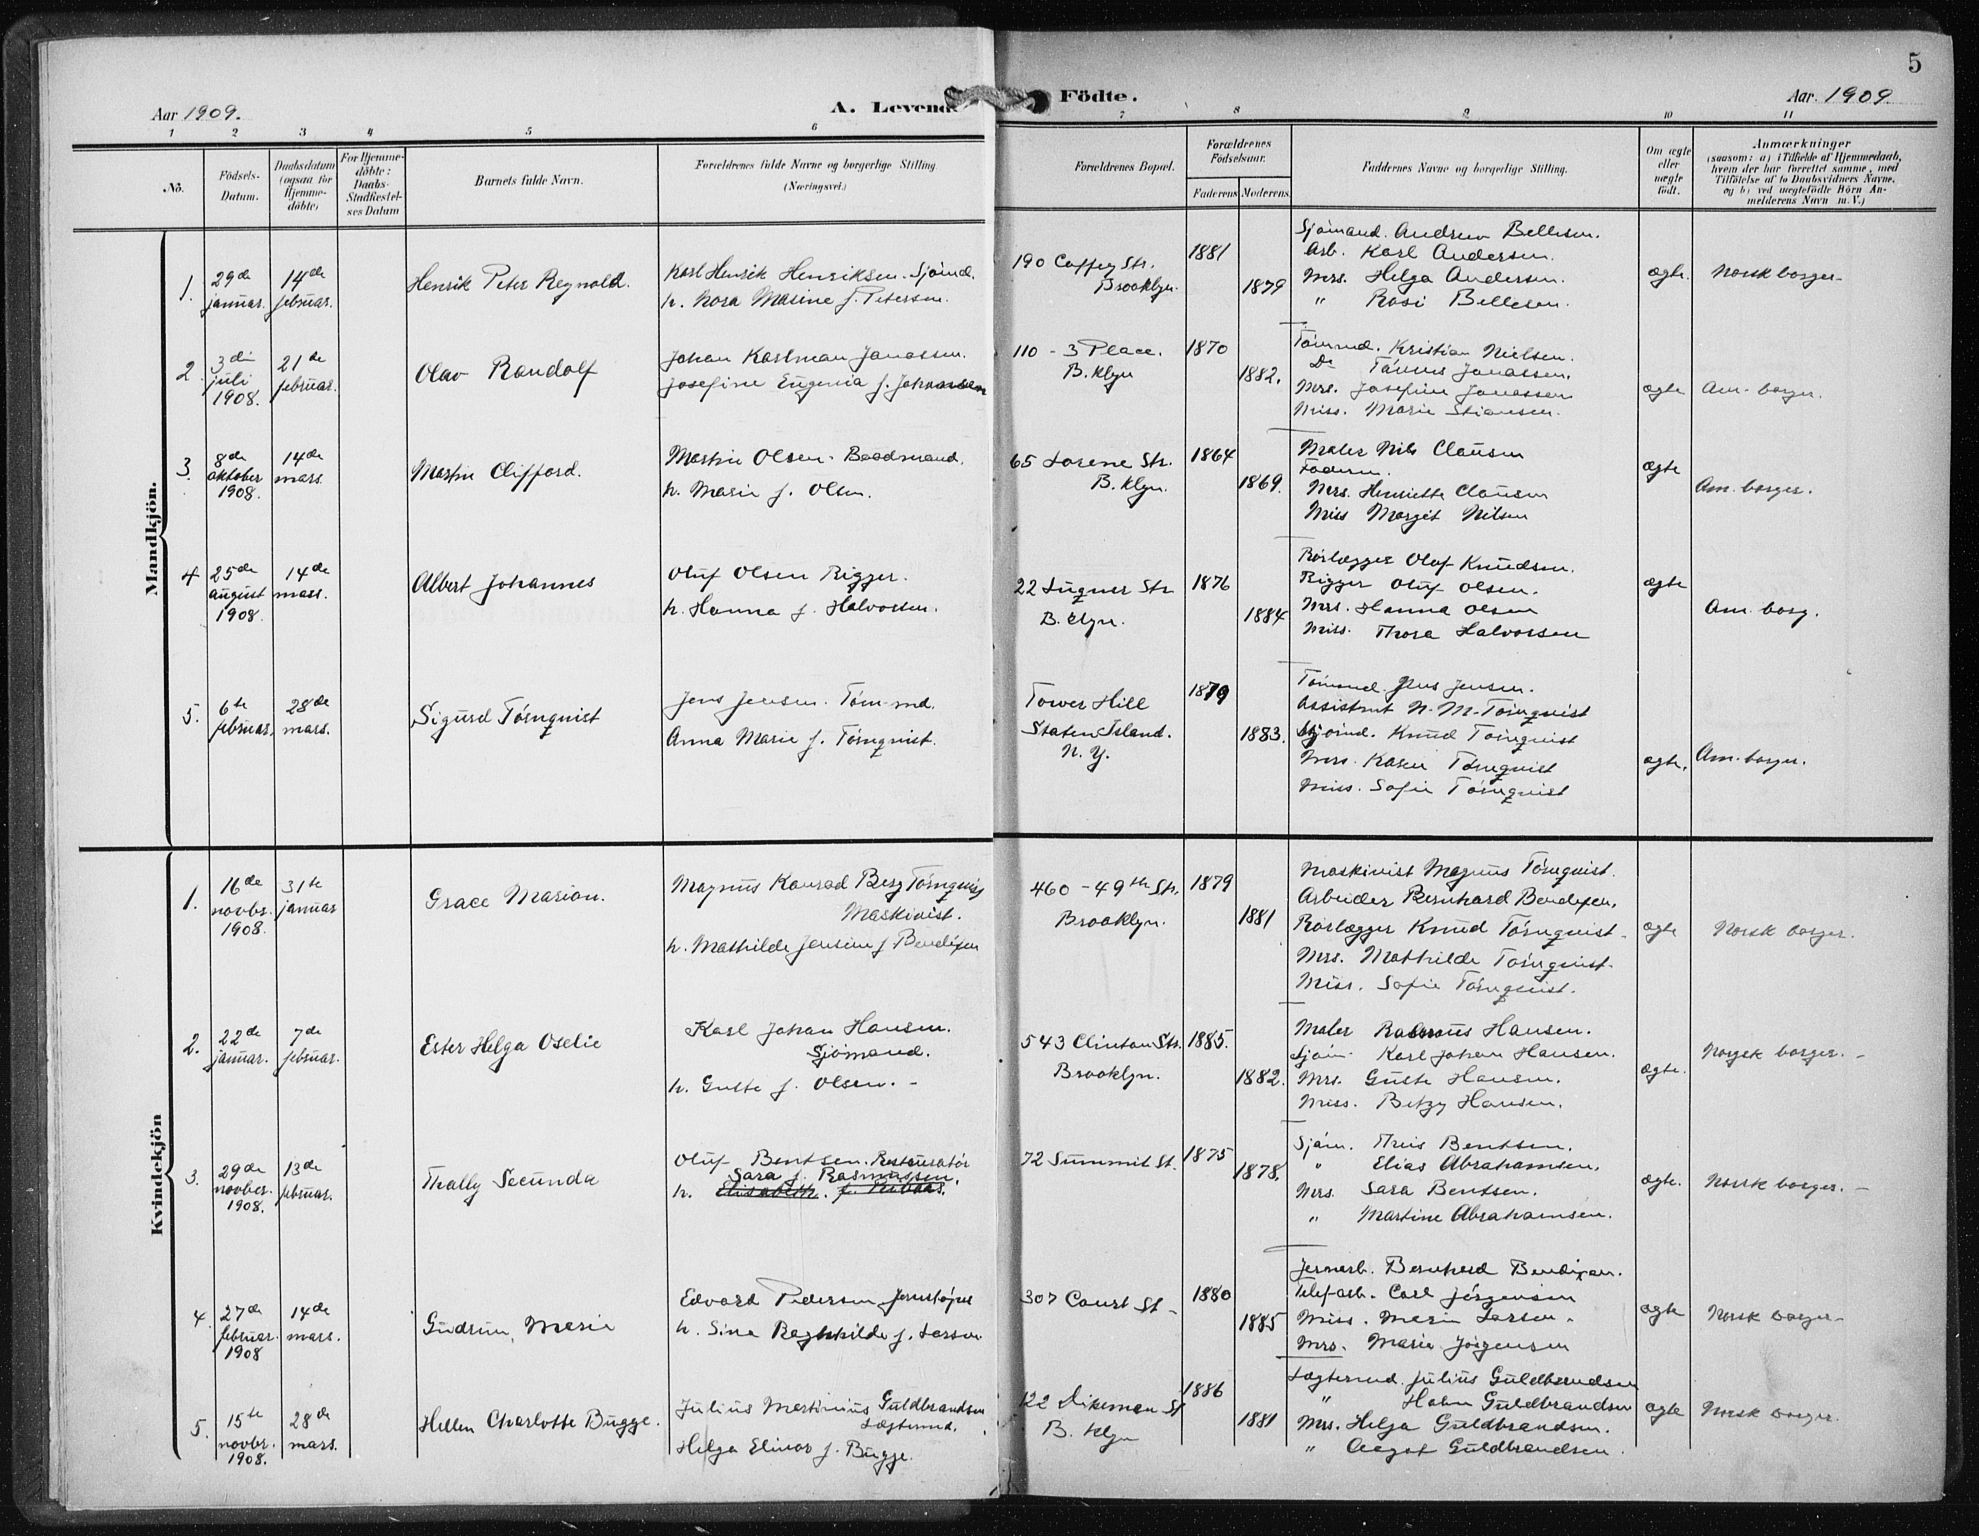 5
Aar 1909. A. Levende Födte. Aar 1909
1 2 3 4 5 6 7 8 9 10 11
No.
Födsels-Datum.
Daabsdatum (ogsaa for Hjemme-döbte)
For Hjemme-döbte: Daabs-Stadfæstel-ses Datum
Barnets fulde Navn.
Forældrenes fulde Navne og borgerlige Stilling. (Næringsvei.)
Forældrenes Bopæl.
Forældrenes Födselsaar.
Faderens Moderens
Faddernes Navne og borgerlige Stilling.
Om ægte eller uægte födt.
Anmærkninger
(saasom: a) i Tilfælde af Hjemmedaab,
hvem der har forrettet samme, med
Tilföielse af to Daabsvidners Navne,
og b) ved uægtefödte Börn An-
melderens Navn m. V.)
Mandkjön.
1. 29de januar. 14de februar. Henrik Peter Reynold.
Karl Henrik Henriksen. Sjömd.
h. Nora Marine f. Petersen.
190 Coffey Str. Brooklyn.
1881 1879
Sjömand. Andrew Bellesen.
Arb. Karl Andersen.
Mrs. Helga Andersen.
" Rosi Bellesen.
ægte. Norsk borger
2. 3die juli 1908. 21de februar. Olav Randolf
Johan Karlman Janassen.
Josefine Eugenia f. Johansen
110 - 3 Place. B. klyn
1870 1882.
Tömmd. Kristian Nielsen.
Do Tönnes Janassen.
Mrs. Josefine Janassen
Miss. Marie Stiansen.
ægte Am. borger.
3. 8de oktober 1908. 14de mars. Martin Clifford.
Martin Olsen. Baadmand.
h. Marie f. Olsen.
65 Lorene Str. B. klyn.
1864 1869.
Maler Nils Clausen
Faderen.
Mrs. Henriette Clausen
Miss Margit Nilsen
ægte Am. borger.
4 25de august 1908. 14de mars. Albert Johannes
Oluf Olsen Rigger.
h. Hanna f. Halvorsen.
22 Luquer Str B. klyn.
1876 1884
Rörlægger Olaf Knudsen.
Rigger Oluf Olsen.
Mrs. Hanna Olsen
Miss. Thora Halvorsen
ægte Am. borg.
5. 6te februar. 28de mars. Sigurd Törnquist
Jens Jensen. Töm. md.
Anna Marie f. Törnquist.
Tower Hill Staten Island. N. Y.
1879 1883.
Tömmd. Jens Jensen.
Assistent N. M. Törnquist
Sjömd. Knud Törnquist
Mrs. Karen Törnquist
Miss. Sofie Törnquist
ægte. Am. borger.
Kvindekjön
1. 16de novbr. 1908. 31te januar Grace Marion.
Magnus Konrad Berg Törnquist
Maskinist.
h. Mathilde Jensine f. Bendixen
460 - 49th Str. Brooklyn.
1879 1881
Maskinist Magnus Törnquist.
Arbeider Bernhard Bendixen.
Rörlægger Knud Törnquist.
Mrs. Mathilde Törnquist.
Miss. Sofie Törnquist.
ægte Norsk borger.
2. 22de januar. 7de februar. Ester Helga Oselie
Karl Johan Hansen.
Sjömand.
h. Guste f. Olsen. -
543 Clinton Str. Brooklyn.
1885. 1882.
Maler Rasmus Hansen.
Sjöm. Karl Johan Hansen.
Mrs. Guste Hansen.
Miss. Betzy Hansen.
ægte. Norsk borger. -
3. 29de novber. 1908. 13de februar. Thally Secunda
Oluf Bentsen. Restauratör
Sara f. Rasmussen.
h. Elisabeth.
72 Summit St.
1875 1878.
Sjöm. Theis Bentsen.
" Elias Abrahamsen.
Mrs. Sara Bentsen.
" Martine Abrahamsen.
ægte. Norsk borger. -
4. 27de februar. 1908 14de mars. Gudrun, Marie
Edvard Pedersen
h. Sina Raghnilde f. Larson
307 Court St -
1880 1885
Jernarb. Bernhard Bendixen.
Telefarb. Carl Jörgensen
Miss. Marie Larsen.
Mrs. Marie Jörgensen
ægte Norsk borger
5. 15te novbr. 1908. 28de mars. Hellen Charlotte Bugge.
Julius Martinius Guldbrandsen
Lægtermd.
Helga Elinor f. Bugge.
122 Dikeman St B. klyn
1886 1881
Lægtermd. Julius Guldbrandsen
" Hakon Guldbrandsen
Mrs. Helga Guldbrandsen.
" Aagot Guldbrandsen.
ægte Norsk borger.